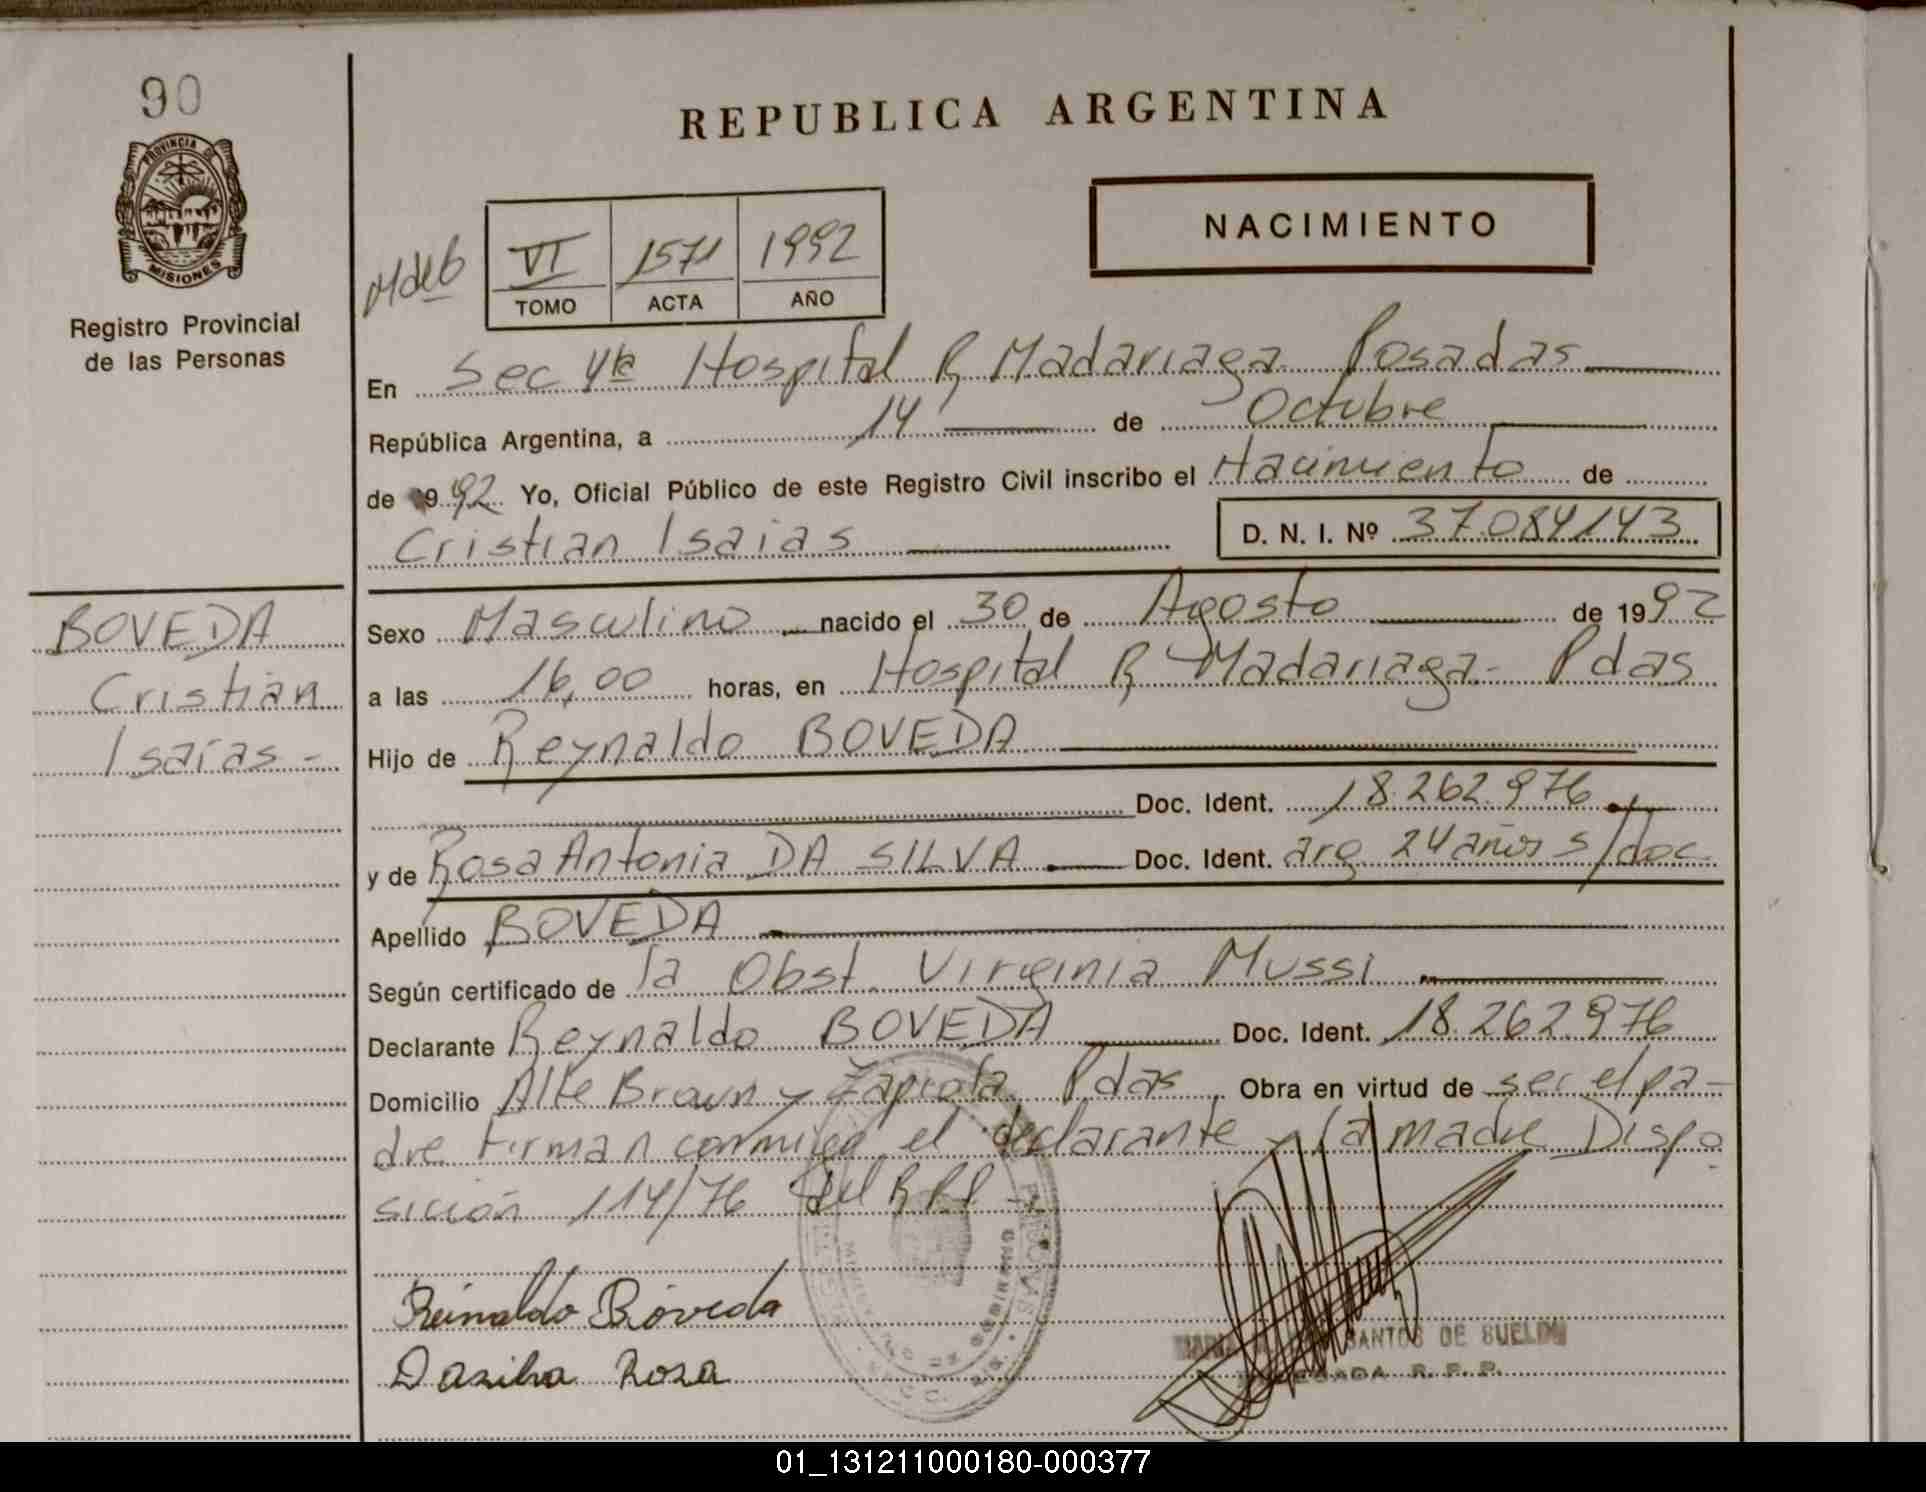 90
PROVINCIA DE
MISIONES
Registro Provincial
de las Personas
REPUBLICA ARGENTINA
NACIMIENTO
VI 1571 1992
TOMO ACTA AÑO
En Sec 4ta Hospital R Madariaga Posadas
República Argentina, a 14 de Octubre
de 1992 Yo, Oficial Público de este Registro Civil inscribo el Nacimiento de
Cristian Isaias D. N. I. Nº 37.084143
BOVEDA
Cristian
Isaías -
Sexo Masculino nacido el 30 de Agosto de 1992
a las 16,00 horas, en Hospital R Madariaga - Pdas
Hijo de Reynaldo BOVEDA
Doc. Ident. 18.262.976
y de Rosa Antonia DA SILVA Doc. Ident. arg. 24 años s/doc.
Apellido BOVEDA
Según certificado de la Obst. Virginia Mussi
Declarante Reynaldo BOVEDA Doc. Ident. 18.262.976
Domicilio Alte Brown y Zapiola Pdas Obra en virtud de ser el pa-
dre firman conmigo el declarante y la madre Dispo
sición 114/76 del RPP
Reinaldo Bóveda
Dasilva Rosa
SANTOS DE
R. P. P.
01_131211000180-000377